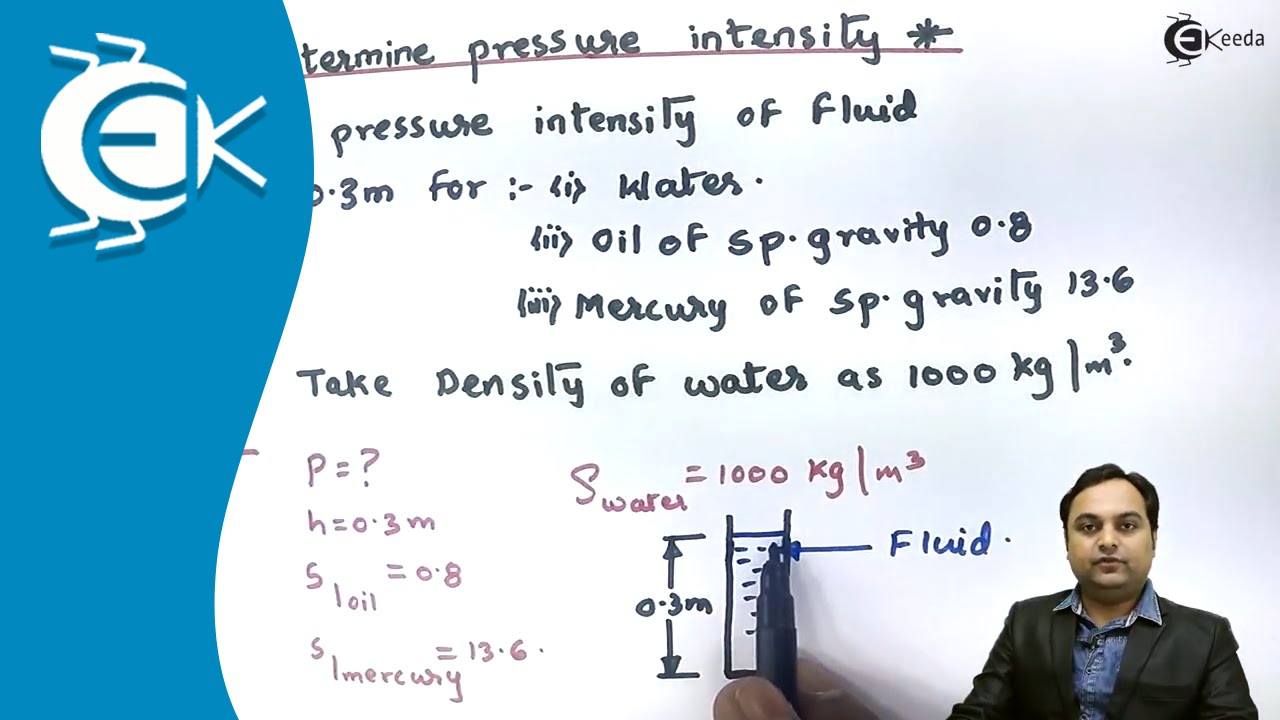 termine pressure intensity *
Keeda
pressure intensity of Fluid
0.3m for :- (i) Water.
(ii) Oil of sp. gravity 0.8
(iii) Mercury of sp. gravity 13.6
Take Density of water as 1000 kg/m³.
P = ?
h = 0.3 m
S oil = 0.8
S mercury = 13.6.
ρ water = 1000 kg/m³
Fluid.
0.3m